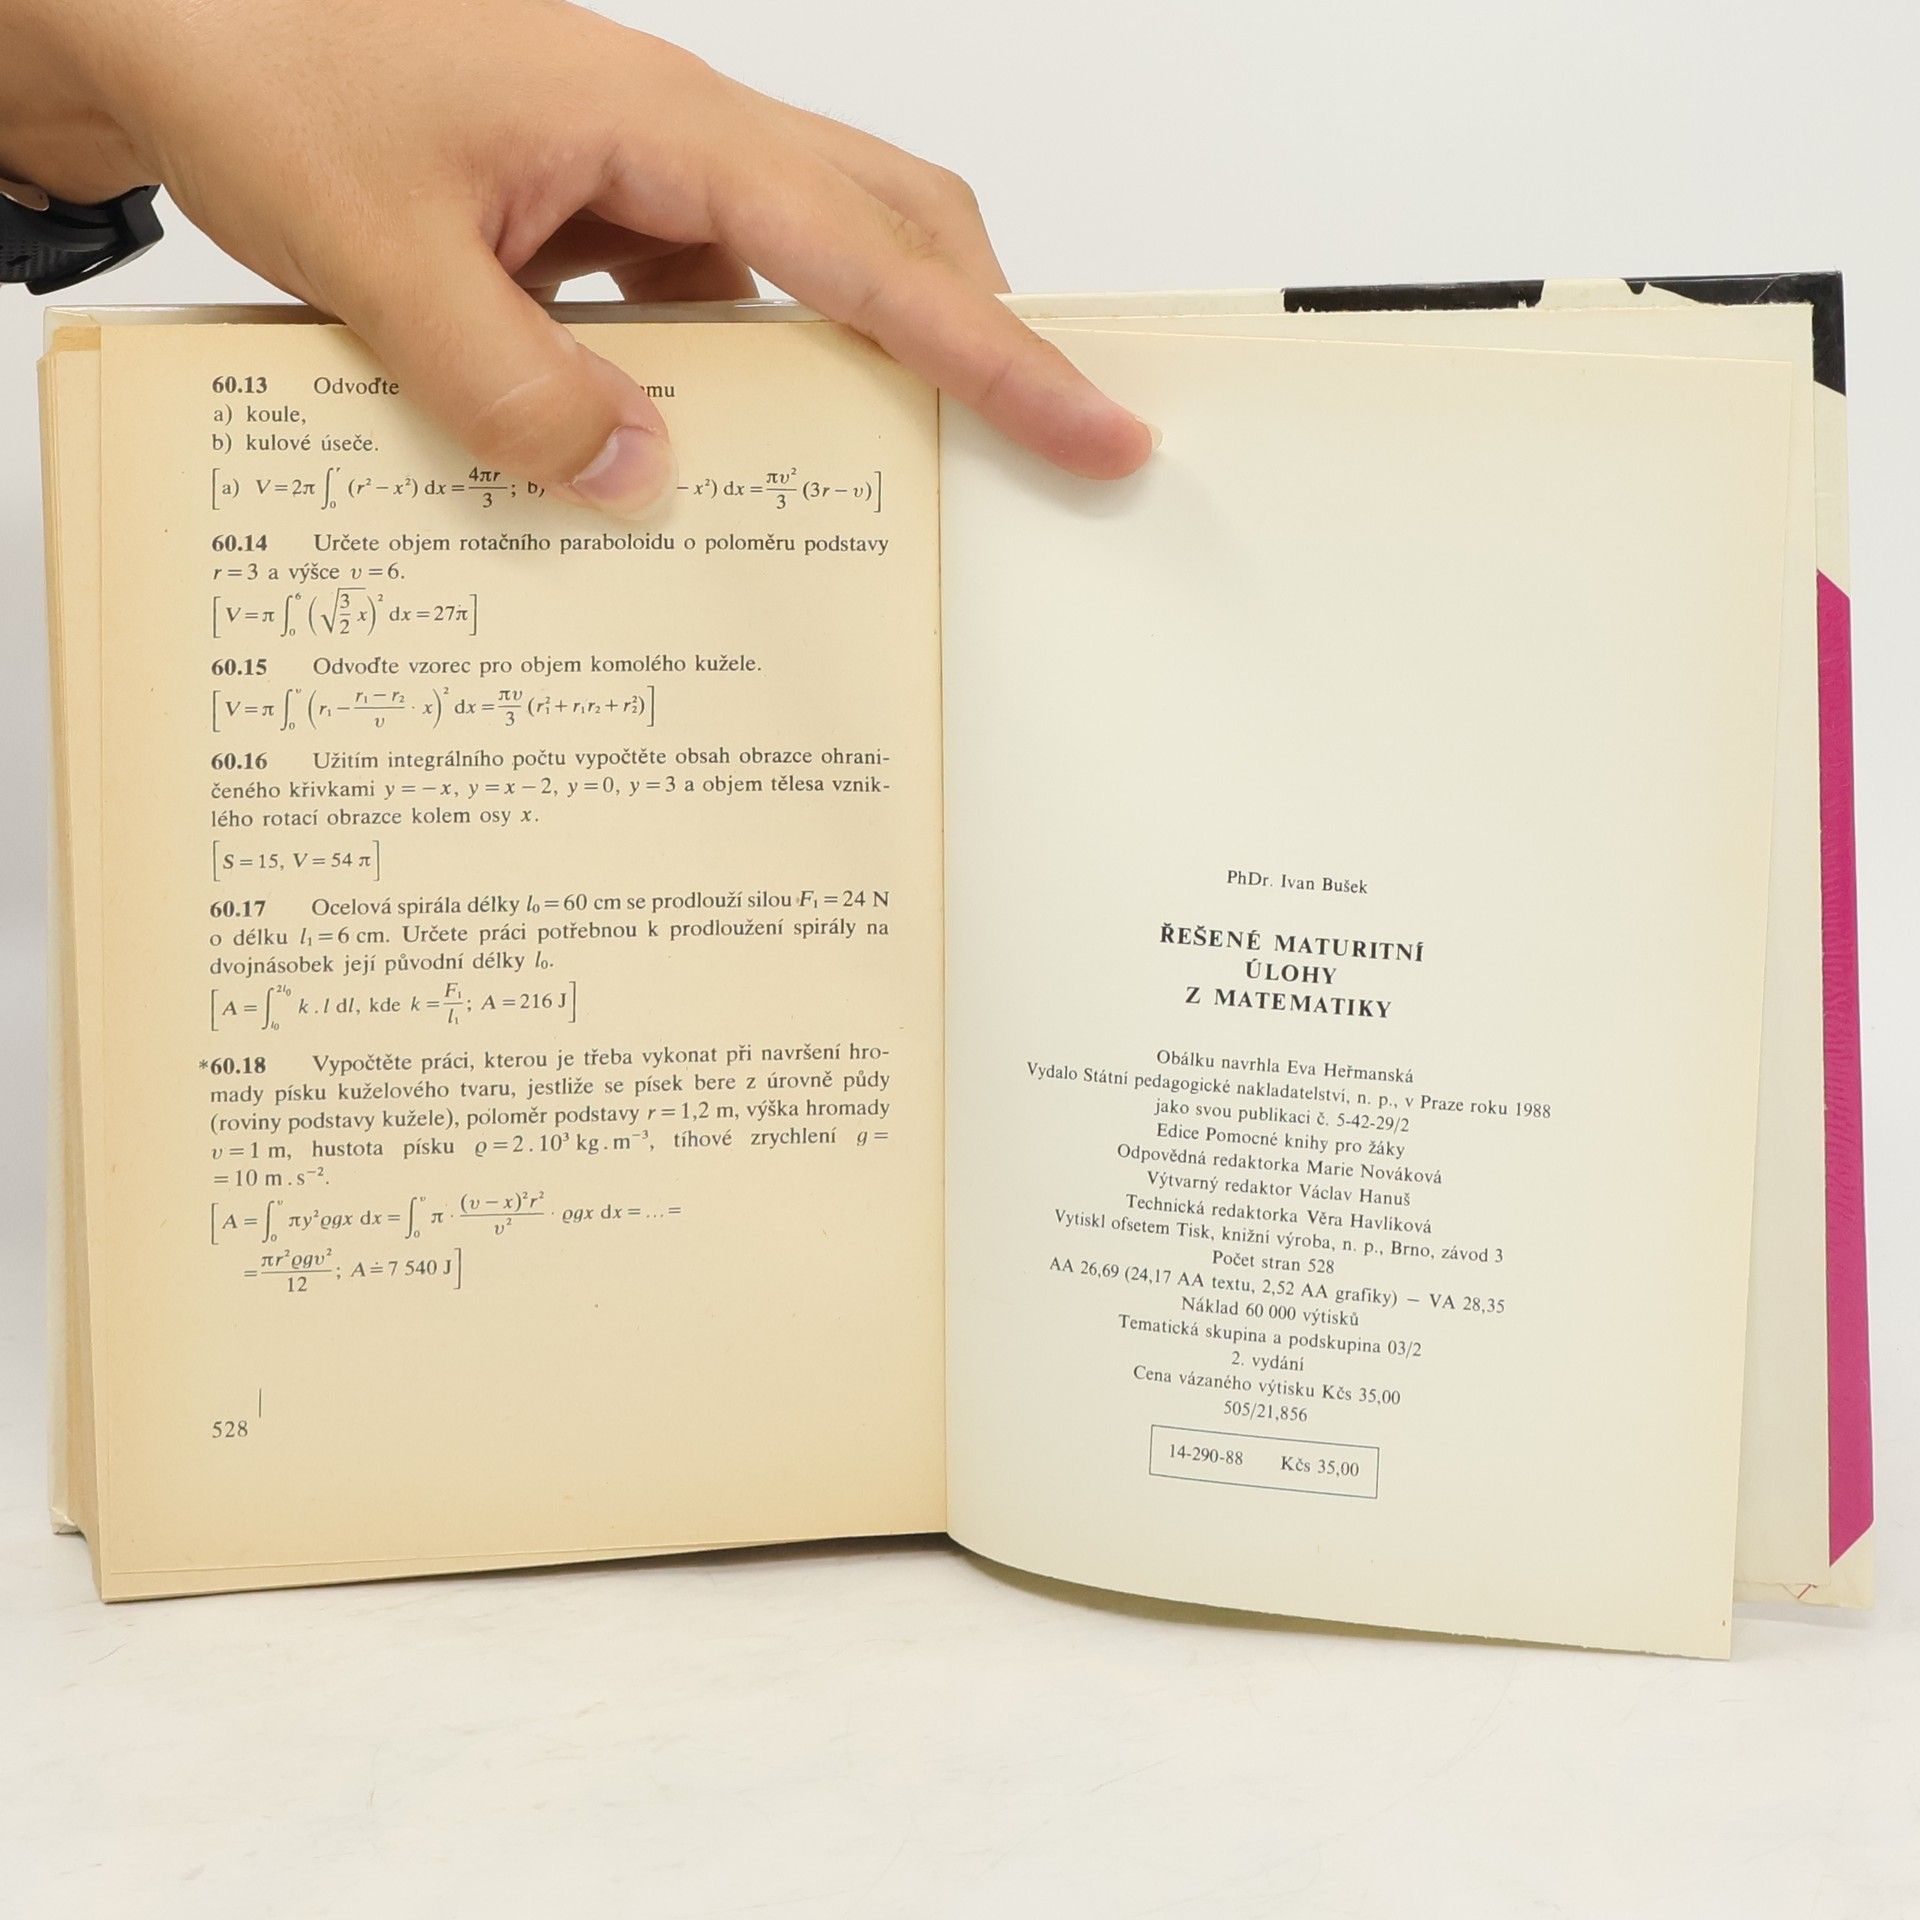 60.13 Odvoďte
a) koule,
b) kulové úseče.
[a) V=2π ∫₀ʳ (r²−x²) dx = 4πr/3; b) −x²) dx = πv²/3 (3r−v)]
60.14 Určete objem rotačního paraboloidu o poloměru podstavy
r=3 a výšce v=6.
[V=π ∫₀⁶ (√(3/2 x))² dx=27π]
60.15 Odvoďte vzorec pro objem komolého kužele.
[V=π ∫₀ᵛ (r₁− (r₁−r₂)/v · x)² dx = πv/3 (r₁²+r₁r₂+r₂²)]
60.16 Užitím integrálního počtu vypočtěte obsah obrazce ohrani-
čeného křivkami y=−x, y=x−2, y=0, y=3 a objem tělesa vznik-
lého rotací obrazce kolem osy x.
[S=15, V=54 π]
60.17 Ocelová spirála délky l₀=60 cm se prodlouží silou F₁=24 N
o délku l₁=6 cm. Určete práci potřebnou k prodloužení spirály na
dvojnásobek její původní délky l₀.
[A=∫_{l₀}^{2l₀} k.l dl, kde k=F₁/l₁; A=216 J]
*60.18 Vypočtěte práci, kterou je třeba vykonat při navršení hro-
mady písku kuželového tvaru, jestliže se písek bere z úrovně půdy
(roviny podstavy kužele), poloměr podstavy r=1,2 m, výška hromady
v=1 m, hustota písku ϱ=2.10³ kg.m⁻³, tíhové zrychlení g=
=10 m.s⁻².
[A=∫₀ᵛ πy²ϱgx dx=∫₀ᵛ π · (v−x)²r²/v² · ϱgx dx=...=
= πr²ϱgv²/12; A≐7 540 J]
528
PhDr. Ivan Bušek
ŘEŠENÉ MATURITNÍ
ÚLOHY
Z MATEMATIKY
Obálku navrhla Eva Heřmanská
Vydalo Státní pedagogické nakladatelství, n. p., v Praze roku 1988
jako svou publikaci č. 5-42-29/2
Edice Pomocné knihy pro žáky
Odpovědná redaktorka Marie Nováková
Výtvarný redaktor Václav Hanuš
Technická redaktorka Věra Havlíková
Vytiskl ofsetem Tisk, knižní výroba, n. p., Brno, závod 3
Počet stran 528
AA 26,69 (24,17 AA textu, 2,52 AA grafiky) – VA 28,35
Náklad 60 000 výtisků
Tematická skupina a podskupina 03/2
2. vydání
Cena vázaného výtisku Kčs 35,00
505/21,856
14-290-88 Kčs 35,00